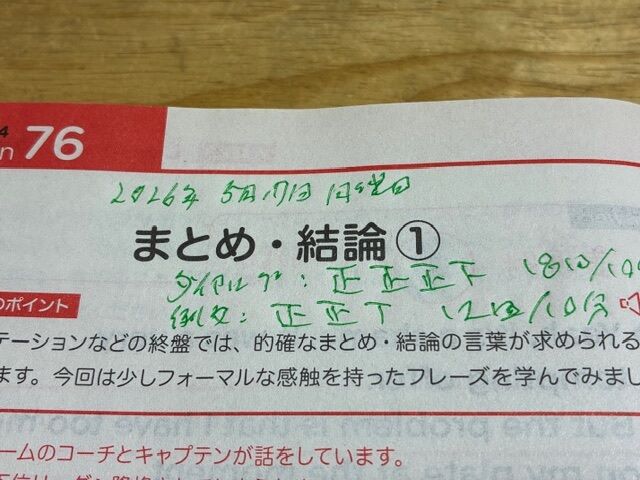 4
n 76
2026年 5月17日 日曜日
まとめ・結論①
ダイアローグ：正正正下 18回/10分
例文：正正下 12回/10分
のポイント
テーションなどの終盤では、的確なまとめ・結論の言葉が求められる
ます。今回は少しフォーマルな感触を持ったフレーズを学んでみまし
ームのコーチとキャプテンが話をしています。